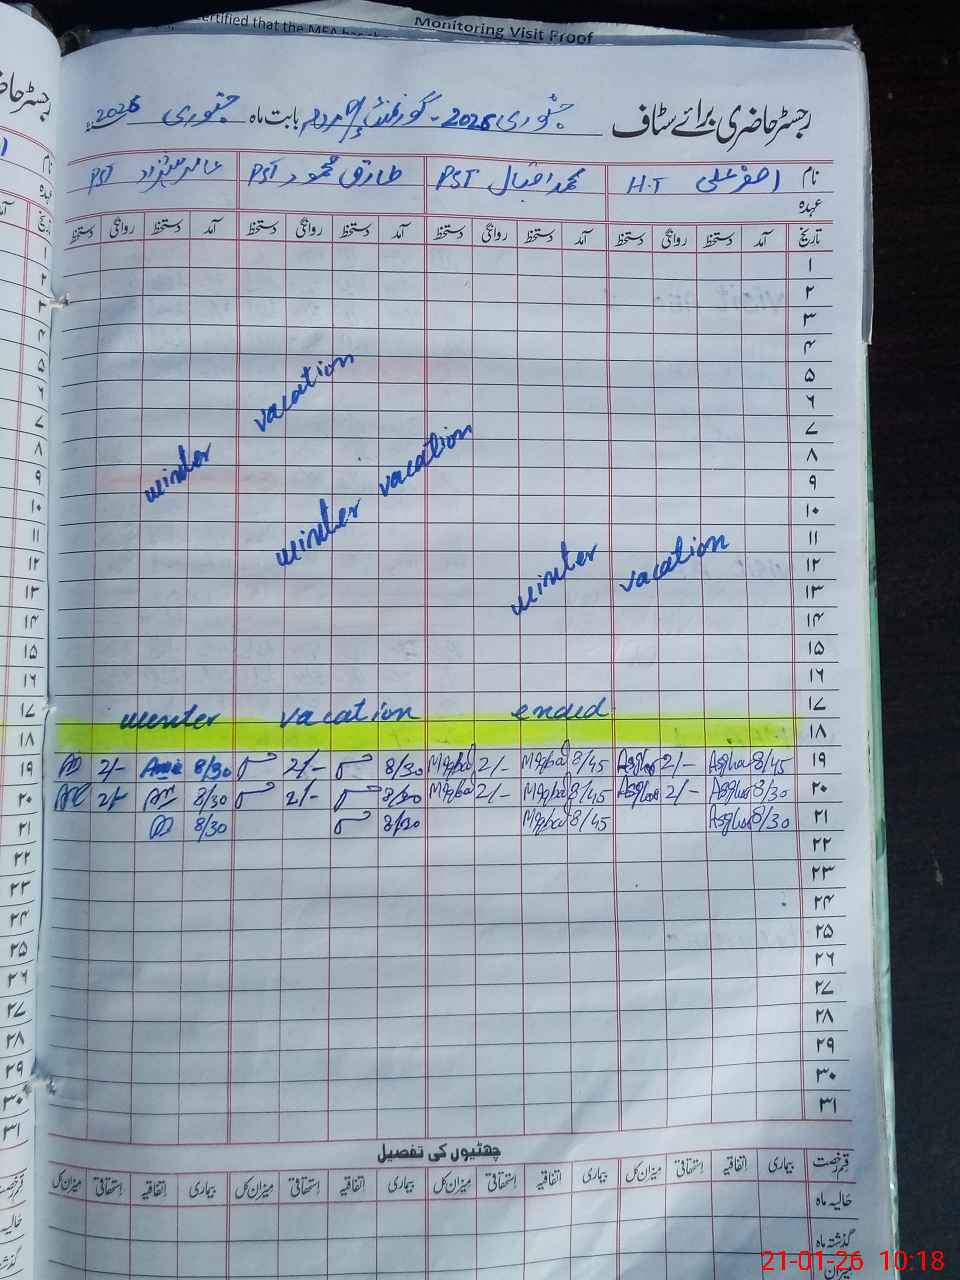 Monitoring Visit Proof
ertified that the MEA has
رجسٹر حاضری برائے سٹاف جنوری 2026 - بابت ماہ جنوری 2026
نام اصغر علی H.T محمد اقبال PST طارق محمود PST PST
عہدہ
تاریخ آمد دستخط روانگی دستخط آمد دستخط روانگی دستخط آمد دستخط روانگی دستخط آمد دستخط روانگی دستخط
۱
۲
۳
۴
۵
۶
۷
۸
۹
۱۰
۱۱
۱۲
۱۳
۱۴
۱۵
۱۶
۱۷
۱۸
winter vacation
winter vacation
winter vacation
winter vacation ended
۱۹ 8/45 Asghar 2/- Asghar 8/45 M Iqbal 2/- M Iqbal 8/30 2/- 8/30 2/-
۲۰ 8/30 Asghar 2/- Asghar 8/45 M Iqbal 2/- M Iqbal 8/30 2/- 8/30 2/-
۲۱ 8/30 Asghar 8/45 M Iqbal 8/30 8/30
۲۲
۲۳
۲۴
۲۵
۲۶
۲۷
۲۸
۲۹
۳۰
۳۱
چھٹیوں کی تفصیل
قسم رخصت بیماری اتفاقیہ استحقاقی میزان کل بیماری اتفاقیہ استحقاقی میزان کل بیماری اتفاقیہ استحقاقی میزان کل بیماری اتفاقیہ استحقاقی میزان کل
حالیہ ماہ
گذشتہ ماہ
میزان
21-01-26 10:18